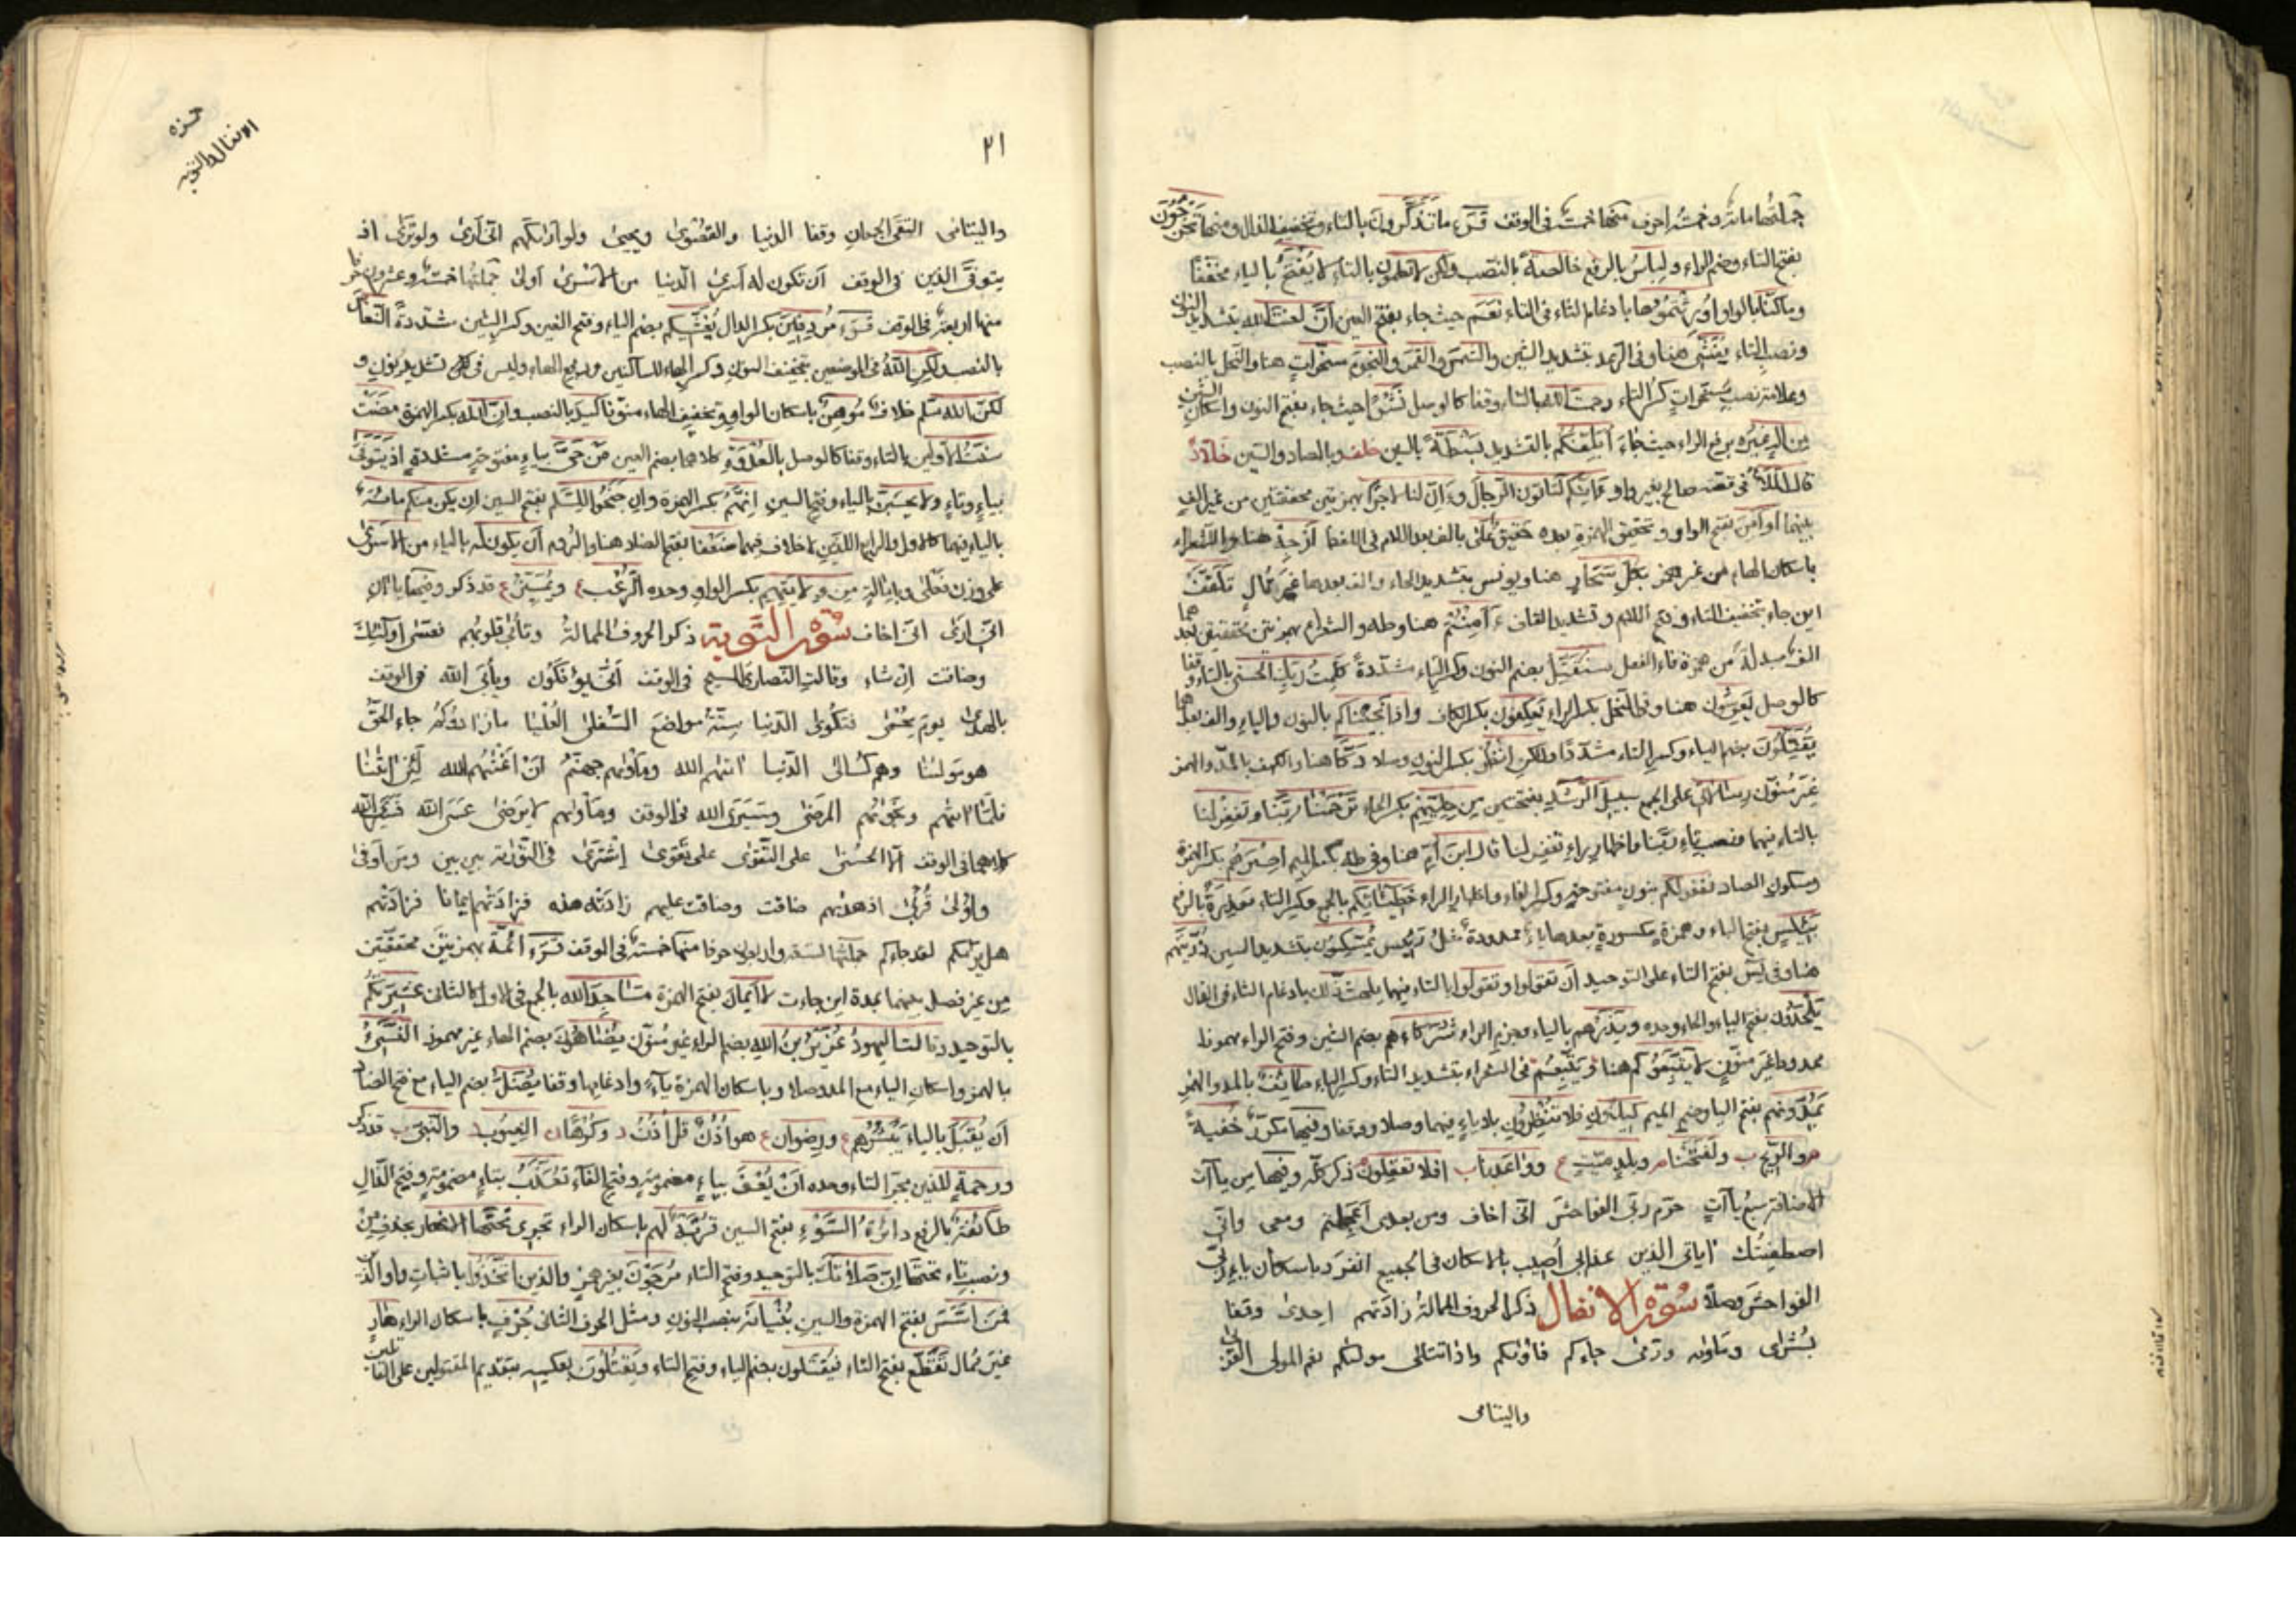 جملتها مائة وخمسة احرف منها خمسة في الوقف قرء ما تذكرون بالتاء وتخفيف الذال ومنها تخرجون
بفتح التاء وضم الراء ولباسُ بالرفع خالصةً بالنصب ولكن لا تعلمون بالتاء لا يُفتَحُ بالياء مخففًا
وما كنا بالواو اورثتموها بادغام الثاء في التاء نعَم حيث جاء بفتح العين انَّ لعنتَ الله بتشديد النون
ونصب التاء يُغَشّى هنا وفي الرعد بتشديد الشين والشمسَ والقمرَ والنجومَ مسخراتٍ هنا والنحل بالنصب
وعلامة نصب مسخراتٍ كسر التاء رحمت الله بالتاء وقفا كالوصل نَشْرًا حيث جاء بفتح النون واسكان الشين
من الهٍ غيرُه برفع الراء حيث جاء أبلّغكم بالتشديد بسطةً بالسين خلف وبالصاد والسين خلاد
قال الملأ في قصة صالح بغير واو ءإنكم لتاتون الرجال وءإنّ لنا لاجرًا بهمزتين محققتين من غير الف
بينهما أوَأمِن بفتح الواو وتحقيق الهمزة بعده حقيق على بالف بعد اللام في اللفظ أرجِهْ هنا والشعراء
باسكان الهاء من غير همز بكل سحّار هنا ويونس بتشديد الحاء والف بعدها غير ممال تلقَّف
اين جاء بتخفيف التاء وفتح اللام وتشديد القاف ءَأامنتم هنا وطه والشعراء بهمزتين محققتين بعدهما
الف مبدلة من همزة فاء الفعل سنُقَتِّل بضم النون وكسر التاء مشددة كلمتُ ربك الحسنى بالتاء وقفا
كالوصل يَعرِشُون هنا وفي النحل بكسر الراء يعكِفون بكسر الكاف واذ أنجيناكم بالنون والياء والف بعدهما
يُقَتِّلون بضم الياء وكسر التاء مشددًا ولكنِ انظر بكسر النون وصلا دكّاءَ هنا والكهف بالمد والهمز
غير منوّن رسالاتي على الجمع سبيل الرَشَد بفتحتين من حِليّهم بكسر الحاء ترحمنا ربَّنا وتغفر لنا
بالتاء فيهما ونصب باء ربَّنا واظهار راء تغفر لنا قال ابن أمِّ هنا وفي طه بكسر الميم إصرَهم بكسر الهمزة
وسكون الصاد نغفر لكم بنون مفتوحة وكسر الفاء واظهار الراء خطيئاتِكم بالجمع وكسر التاء معذرةٌ بالرفع
بَئِيسٍ بفتح الباء وهمزة مكسورة بعدها ياء ممدودة مثل رئيس يُمَسِّكون بتشديد السين ذريتَهم
هنا وفي يس بفتح التاء على التوحيد أن تقولوا وتقولوا بالتاء فيهما يلهث ذلك بادغام الثاء في الذال
يَلحَدون بفتح الياء والحاء وحده ويذرْهم بالياء وجزم الراء شركاءَ هم بضم الشين وفتح الراء مهموزا
ممدودا غير منوّن لا يتّبعوكم هنا ويتّبعهم في الشعراء بتشديد التاء وكسر الباء طائفٌ بالمد والهمز
يَمُدّونهم بفتح الياء وضم الميم كيدونِ فلا تنظرونِ بلا ياء فيهما وصلا ووقفا وفيها مكرر خفيةً
والريح ولفتحنا وبلدٍ ميّت وواعدنا افلا تعقلون ذكر كله وفيها من ياآت
الاضافة سبع ياآت حرم ربي الفواحش اني اخاف ومن بعدي أعجلتم ومعي واني
اصطفيتك اياتي الذين عذابي أصيب بالاسكان في الجميع انفرد باسكان ياء ربي
الفواحش وصلًا سورة الانفال ذكر الحروف الممالة زادتهم احدى وقفا
بُشرى ومأواه ورمى جاءكم فآواكم واذا تتلى مولاكم نعم المولى القربى
واليتامى
حمزه
الانفال والتوبه
٢١
واليتامى التقى الجمعان وقفا الدنيا والقصوى ويحيى ولو اراكهم اني أرى ولو ترى اذ
يتوفى الذين في الوقف أن تكون له أسرى الدنيا من الأسرى أولى جملتها خمسة وعشرون حرفا
منها اربعة في الوقف قرء مردِفين بكسر الدال يُغَشِّيكم بضم الياء وفتح الغين وكسر الشين مشددةً النعاسَ
بالنصب ولكنِ اللهُ في الموضعين بتخفيف النون وكسر الهاء للساكنين ورفع الهاء وليس في كل تشديد نون و
لكن الله سلم خلاف مُوهِنٌ باسكان الواو وتخفيف الهاء منوّنا كيدَ بالنصب وانّ الله بكسر الهمزة مضت
سنتُ الاولين بالتاء وقفا كالوصل بالعُدوة كلاهما بضم العين من حيَّ بياء مفتوحة مشددة اذ يتوفى
بياء وتاء ولا يحسبنّ بالياء وفتح السين إنهم بكسر الهمزة وان جنحوا للسَّلم بفتح السين ان يكن منكم مائة
بالياء فيهما كالاول والرابع اللذين لا خلاف فيهما ضَعفا بفتح الضاد هنا والروم أن يكون له بالياء من الأسرى
على وزن فَعلى وبابالهٍ من وِلايتهم بكسر الواو وحده الرُّعب ويُميّز قد ذكر وفيها ياآن
اني ارى اني اخاف سورة التوبة ذكر الحروف الممالة وتأبى قلوبهم فعسى اولئك
وضاقت إن شاء وقالت النصارى المسيح في الوقف أنى يؤفكون ويأبى الله في الوقف
بالهدى يوم يُحمى فتكوى الدنيا ستة مواضع السفلى العُليا ما زادوكم جاء الحق
هو مولانا وهم كسالى الدنيا اتاهم الله ومأواهم جهنم أن أغناهم الله لئن اتانا
فلمّا اتاهم ونجواهم المرضى وسيرى الله في الوقف ومأواهم لا يرضى عسى الله فسيرى الله
كلاهما في الوقف الا الحسنى على التقوى على تقوى اشترى في التورية بين بين ومن أوفى
واولى قُربى اذ هداهم ضاقت وضاقت عليهم زادته هذه فزادتهم ايمانا فزادتهم
هل يراكم لقد جاءكم جملتها تسعة واربعون حرفا منها خمسة في الوقف قرء أئمة بهمزتين محققتين
من غير فصل بينهما بمدة اين جاءت لا أيمان بفتح الهمزة مساجدَ الله بالجمع في الاول كالثاني عشيرتكم
بالتوحيد وقالت اليهودُ عزيرُ بن الله بضم الراء غير منوّن يُضاهُون بضم الهاء غير مهموز النسيءُ
بالهمز واسكان الياء مع المد وصلا وباسكان الهمزة ياءً وادغامها وقفا يُضَلُّ بضم الياء مع فتح الضاد
أن يُقبَل بالياء يَبشُرُهم ورِضوان هو أذُنٌ قل أذُنُ وكُرهًا الغيوب والنبي قد ذكر
ورحمةٍ للذين بجر التاء وحده إن يُعفَ بياء مضمومة وفتح الفاء تُعذَّب بتاء مضمومة وفتح الذال
طائفةٌ بالرفع دائرة السَّوء بفتح السين قُرْبة لهم باسكان الراء تجري تحتَها الانهار بحذف من
ونصب تاء تحتها إن صلاتَك بالتوحيد وفتح التاء مُرجَون بغير همز والذين اتخذوا باثبات واو الذين
أفمن أسَّسَ بفتح الهمزة والسين بُنيانَه بنصب النون ومثل الحرف الثاني جُرْفٍ باسكان الراء هارٍ
غير ممال تَقطَّع بفتح التاء فيُقتَلون بضم الياء وفتح التاء ويَقتُلون بعكسه بتقديم المقتولين على القاتلين